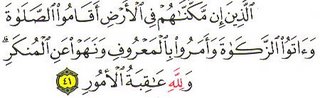 ٱلَّذِينَ إِن مَّكَّنَّٰهُمْ فِى ٱلْأَرْضِ أَقَامُوا۟ ٱلصَّلَوٰةَ
وَءَاتَوُا۟ ٱلزَّكَوٰةَ وَأَمَرُوا۟ بِٱلْمَعْرُوفِ وَنَهَوْا۟ عَنِ ٱلْمُنكَرِ ۗ
وَلِلَّهِ عَٰقِبَةُ ٱلْأُمُورِ ٤١